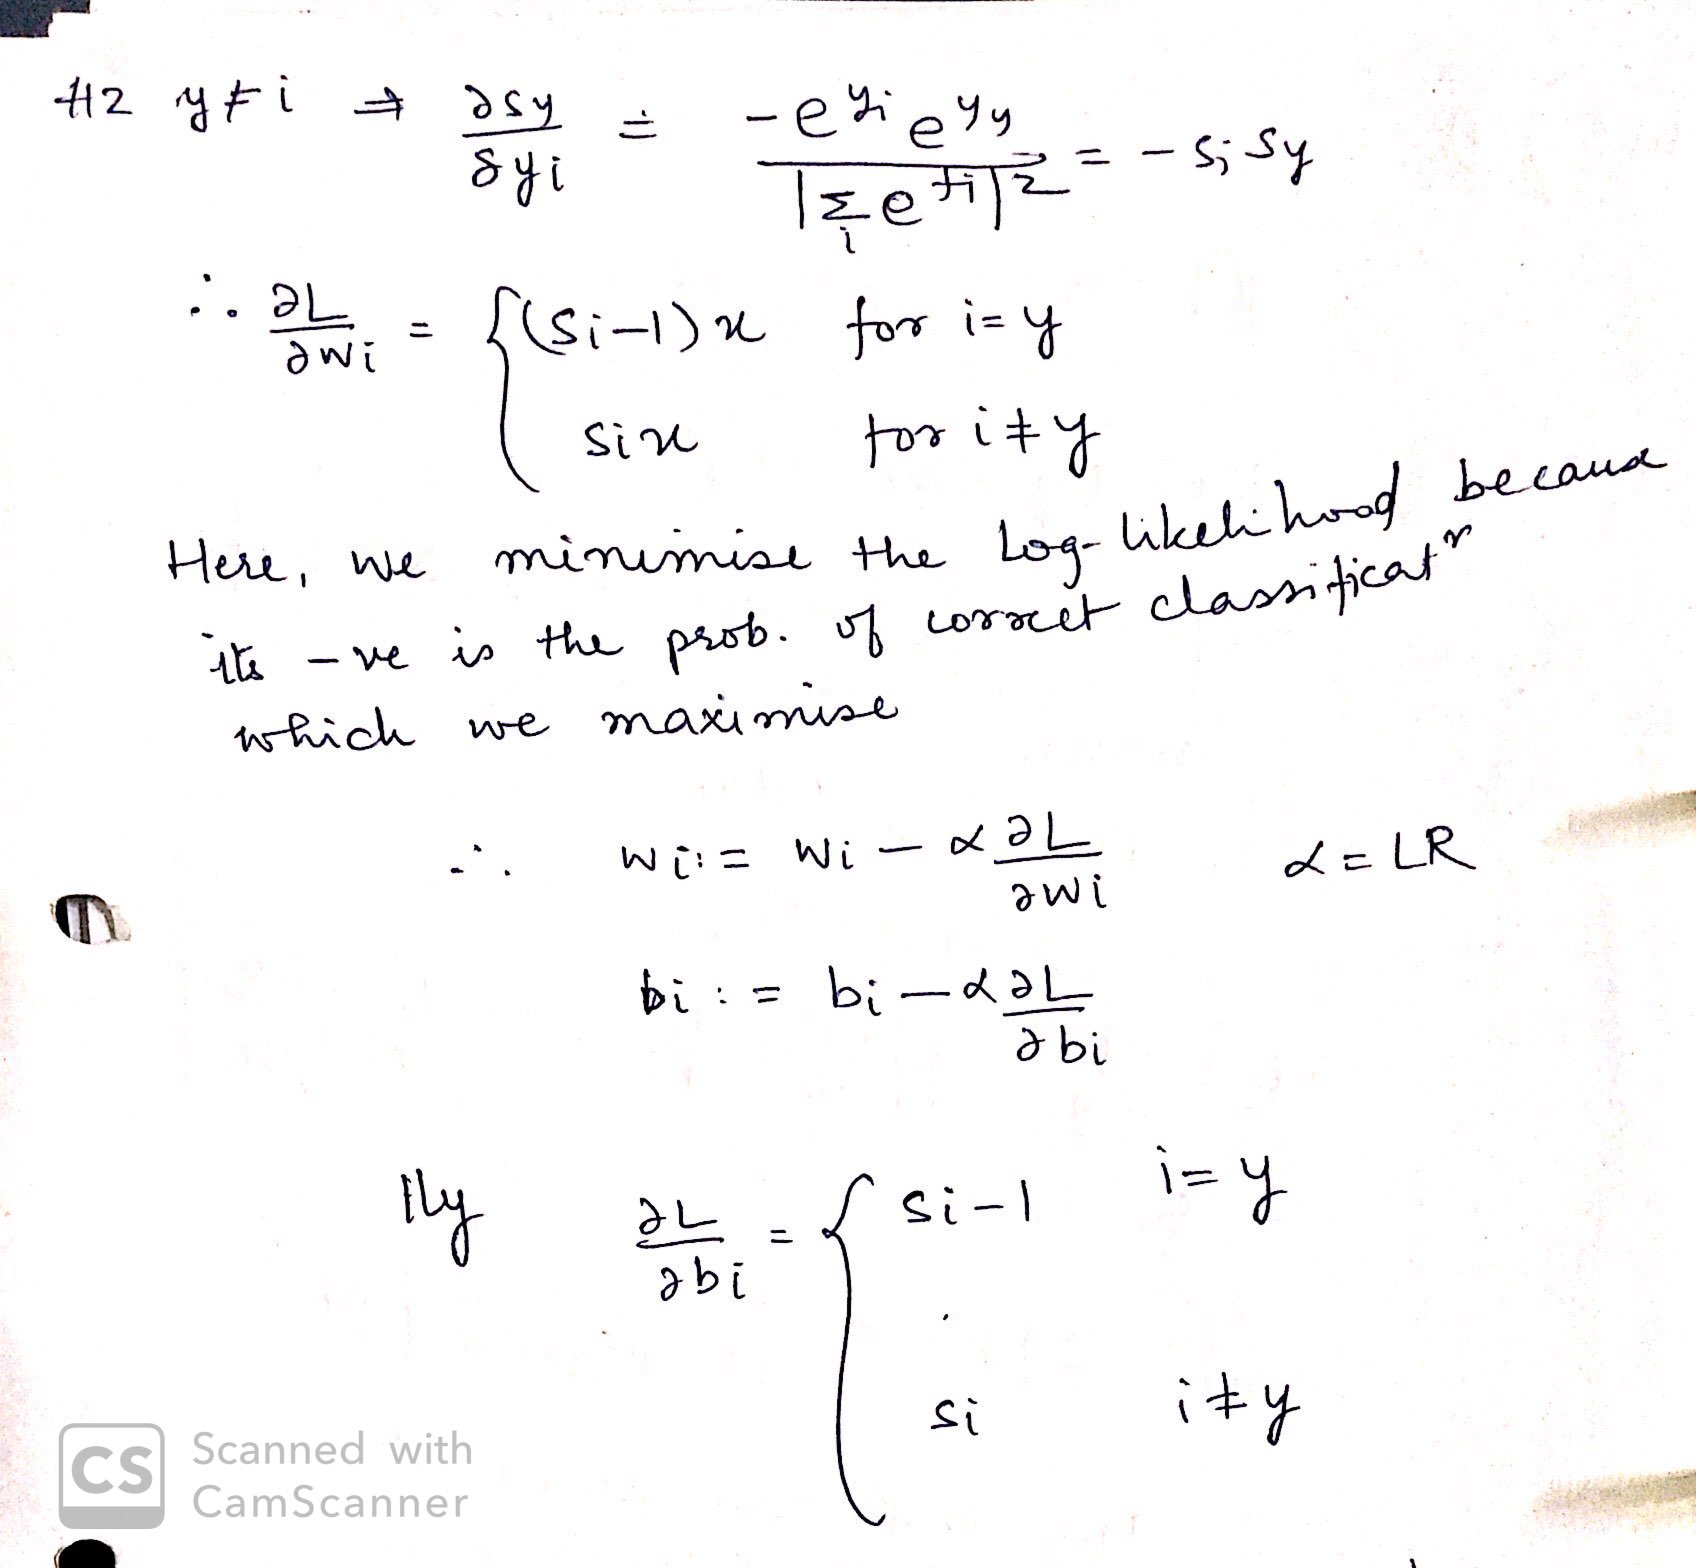 #2 y ≠ i ⇒ ∂sy/δyi = -e^yi e^yy / |Σi e^fi|^2 = - si sy
∴ ∂L/∂wi = { (si-1)x for i=y
six for i≠y
Here, we minimise the Log-likelihood becaus
its -ve is the prob. of correct classificatn
which we maximise
∴ wi := wi - α ∂L/∂wi α = LR
bi := bi - α ∂L/∂bi
lly ∂L/∂bi = { si-1 i=y
si i≠y
CS Scanned with
CamScanner